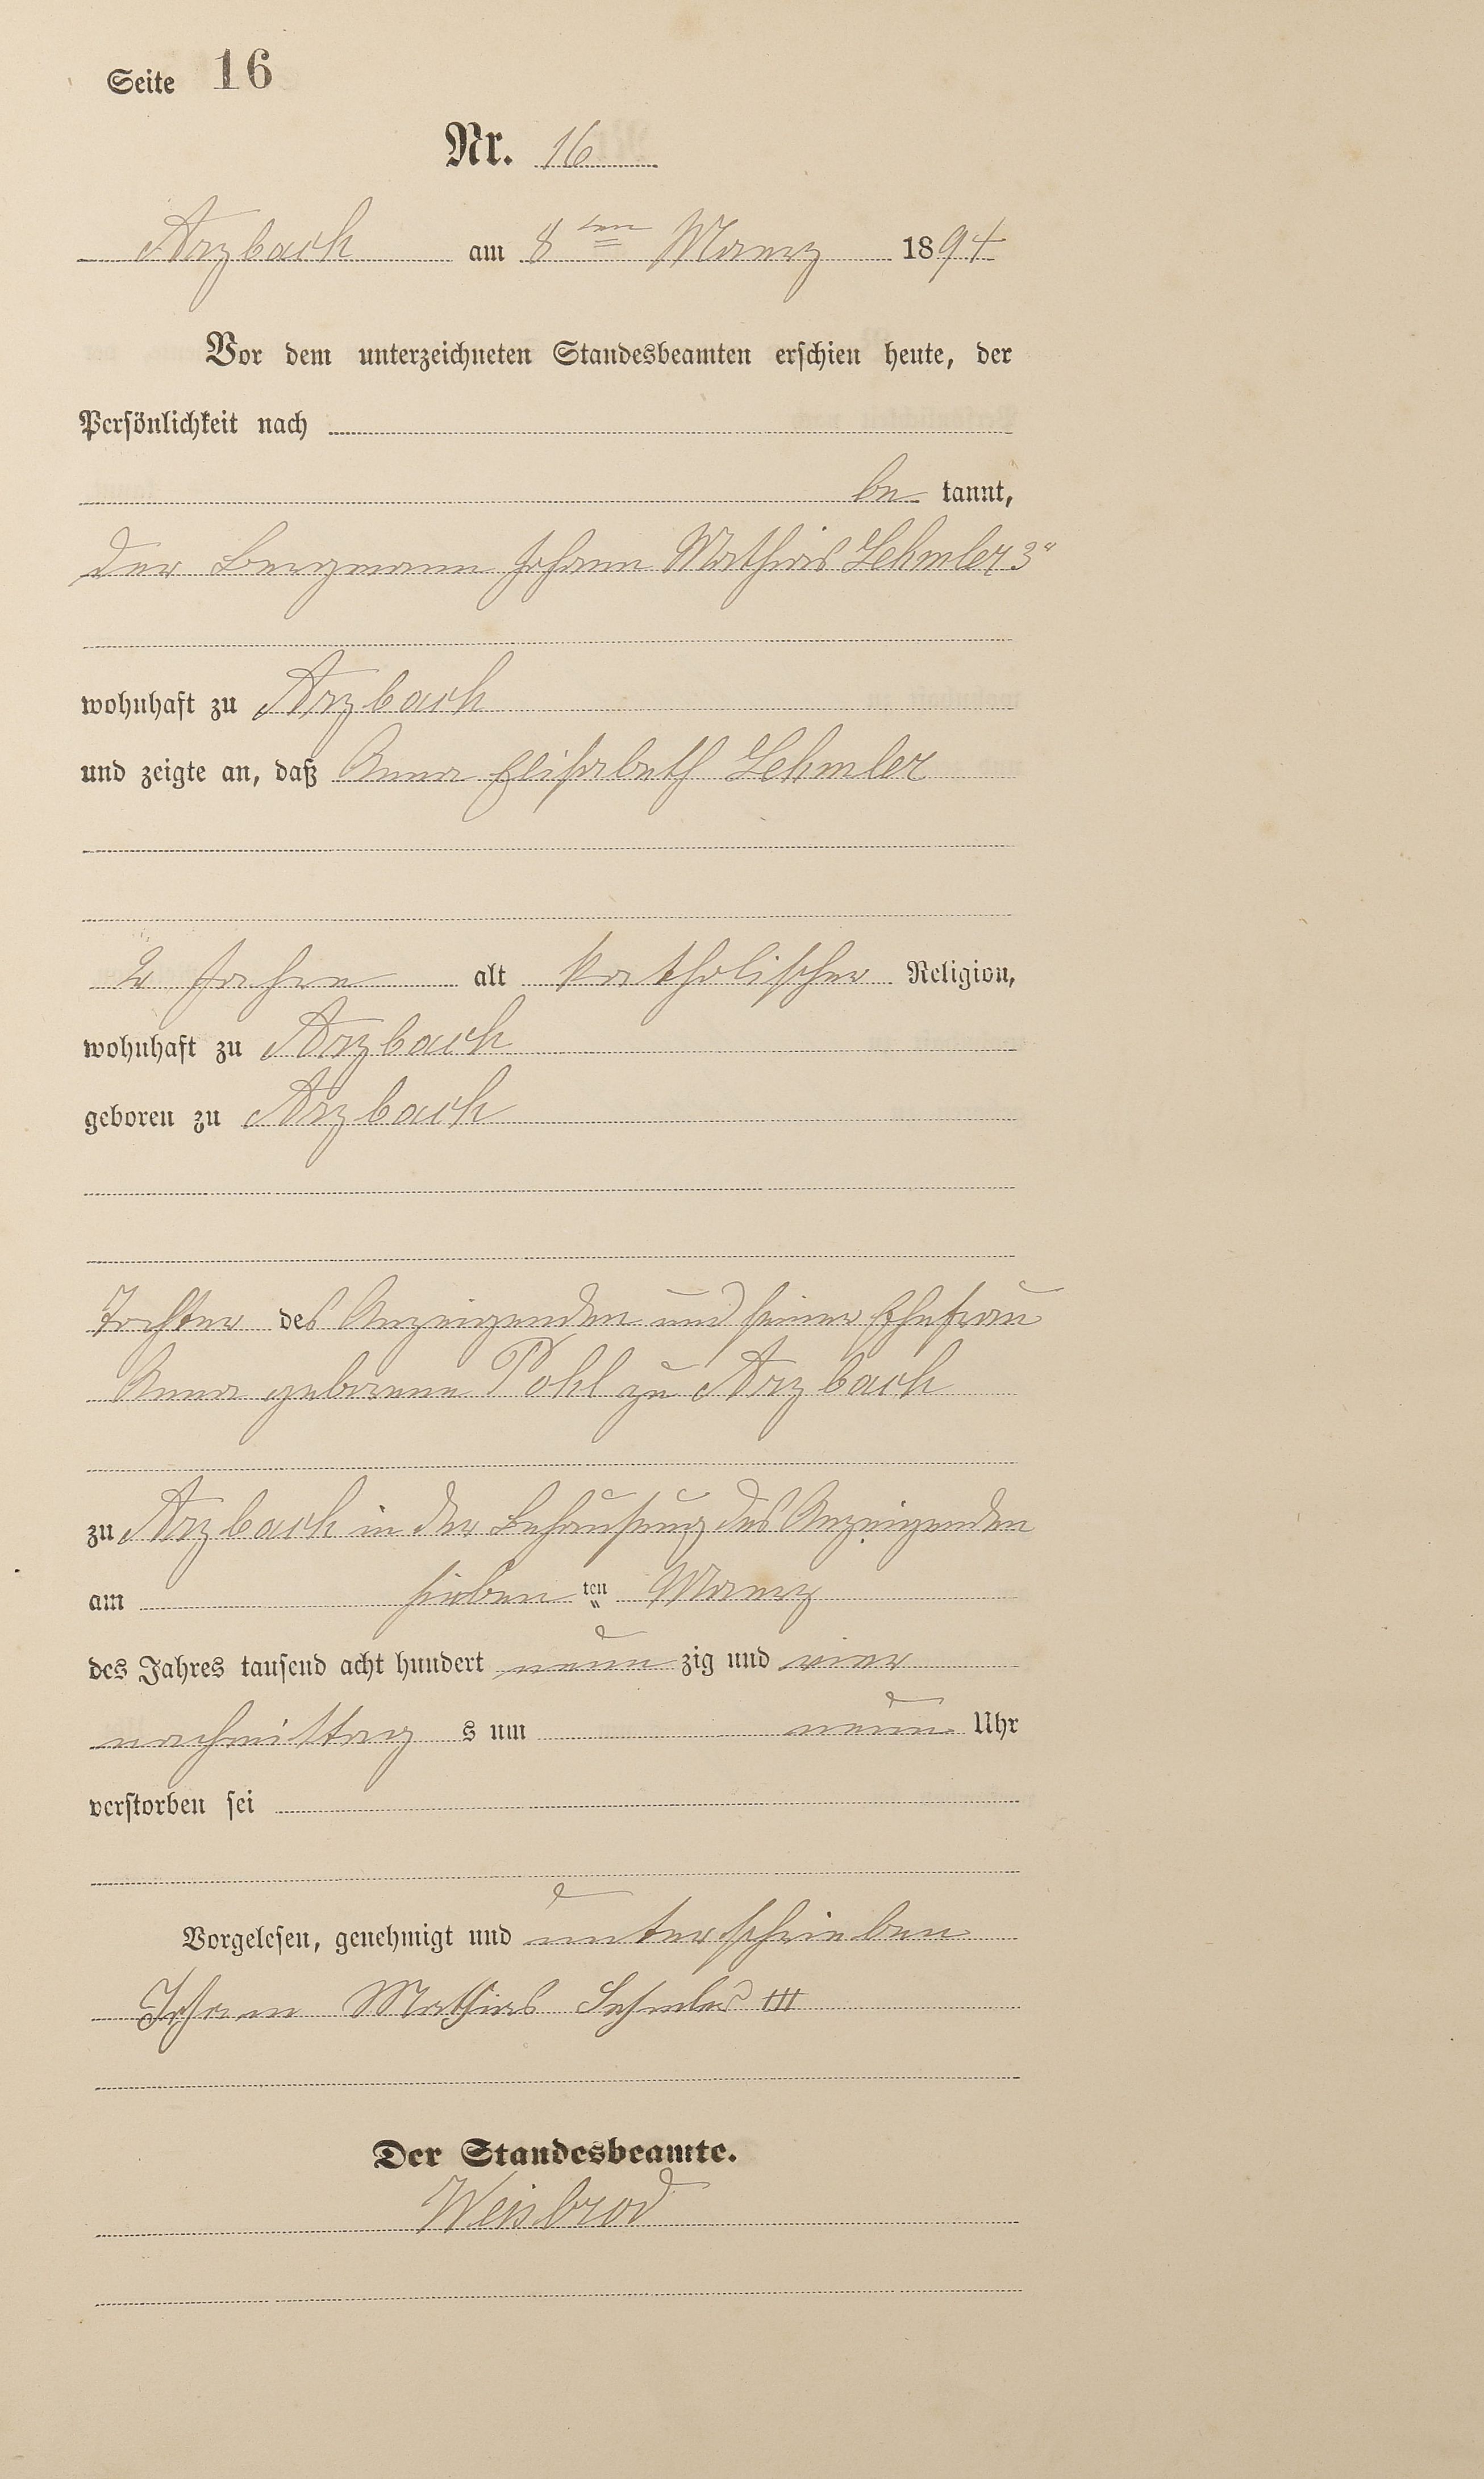 Seite 16
Nr. 16
Arzbach am 8ten Maerz 1894
Vor dem unterzeichneten Standesbeamten erschien heute, der
Persönlichkeit nach
be kannt,
der Bergmann Johann Mathias Lehmler 3r
wohnhaft zu Arzbach
und zeigte an, daß Anna Elisabeth Lehmler
2 Jahre alt katholischer Religion,
wohnhaft zu Arzbach
geboren zu Arzbach
Tochter des Anzeigenden und seiner Ehefrau
Anna geborene Pohl zu Arzbach
zu Arzbach in der Behausung des Anzeigenden
am sieben ten Maerz
des Jahres tausend acht hundert neun zig und vier
nachmittag s um neun Uhr
verstorben sei
Vorgelesen, genehmigt und unterschrieben
Johann Mathias Lehmler III
Der Standesbeamte.
Weisbrod